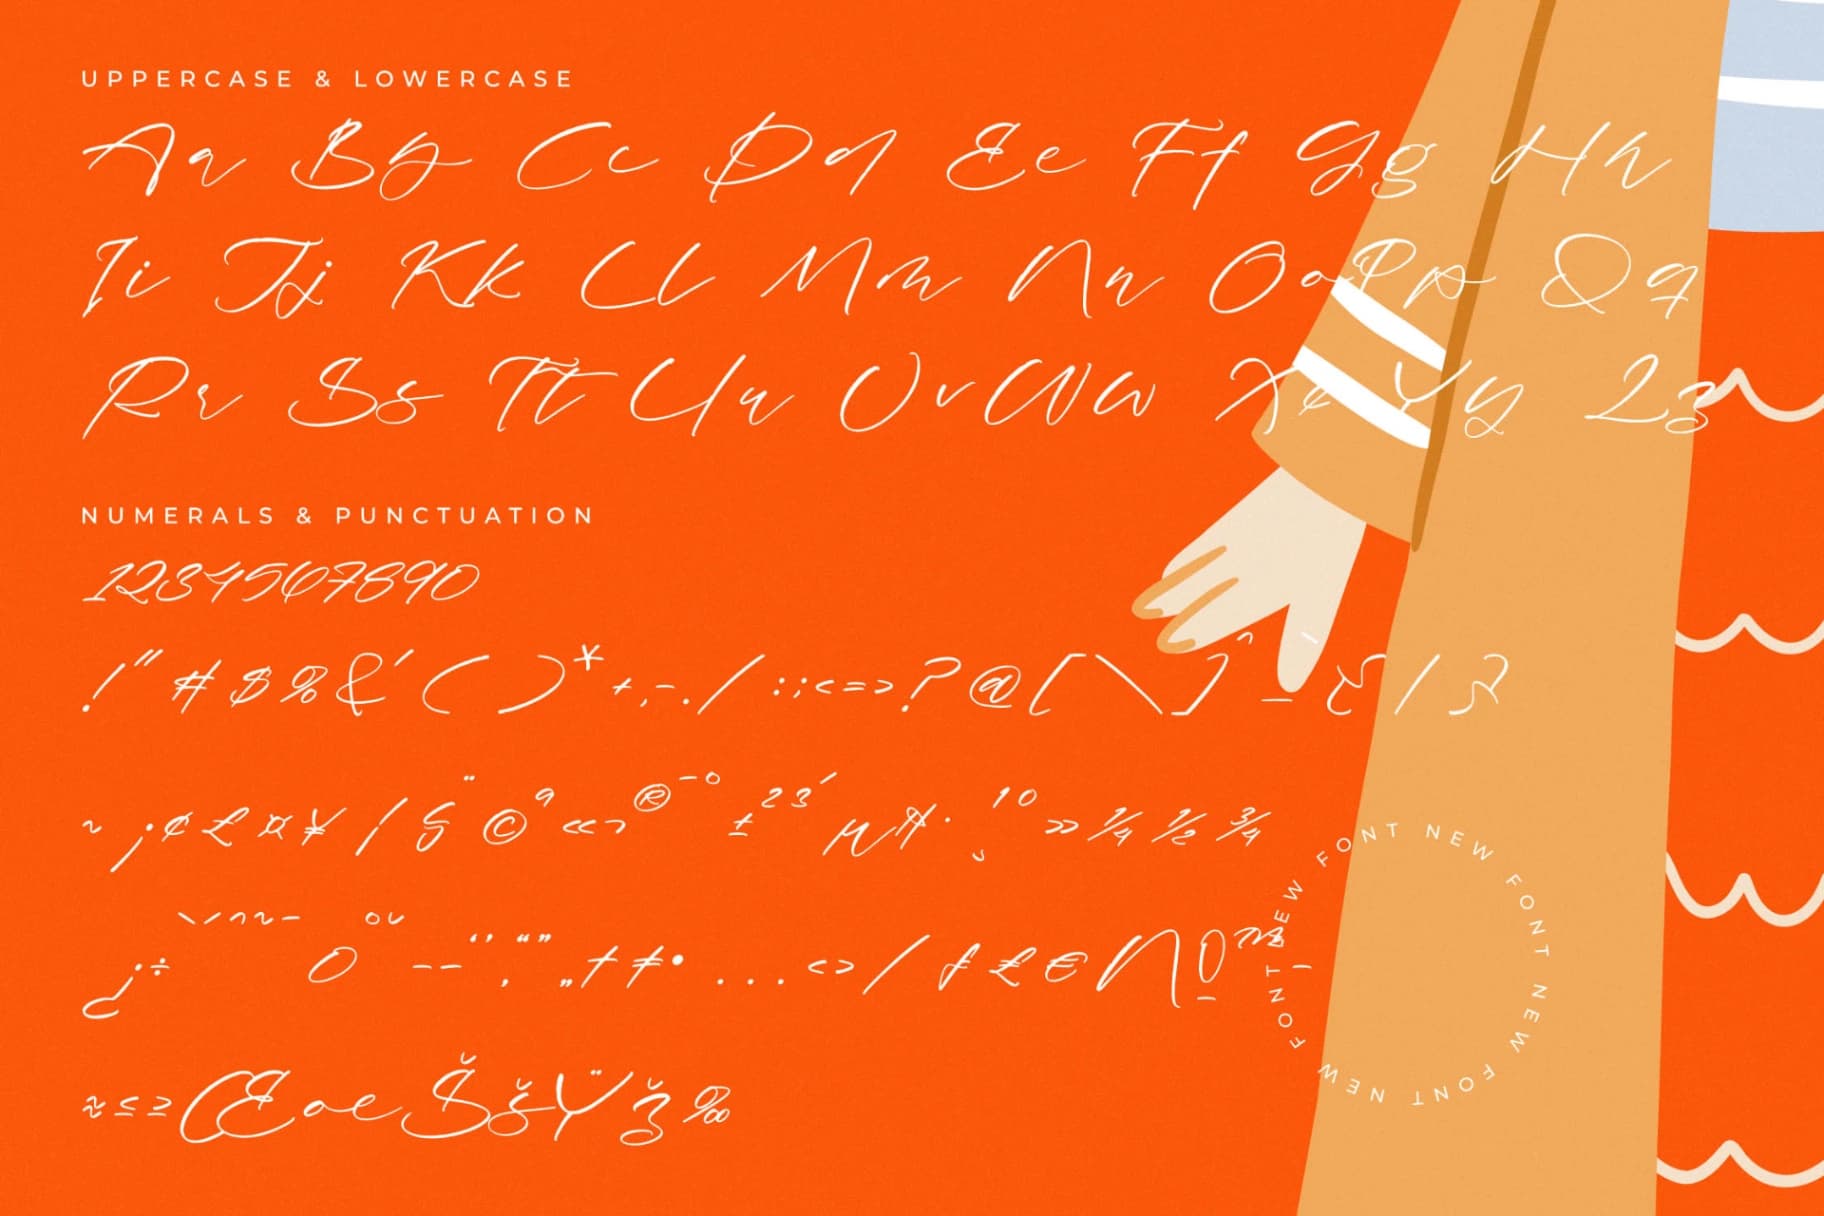 UPPERCASE & LOWERCASE
Aa Bb Cc Dd Ee Ff Gg Hh
Ii Jj Kk Ll Mm Nn Oo Pp Qq
Rr Ss Tt Uu Vv Ww Xx Yy Zz
NUMERALS & PUNCTUATION
1234567890
!"#$%&'()*+,-./:;<=>?@[\]^_`{|}
~¡¢£¤¥¦§¨©ª«¬®¯°±²³´µ¶·¸¹º»¼½¾
¿÷ˋˊˆ˜ˉ 0 ˚˘ –— ‘’‚“”„†‡•...‹›/ƒ₤€№™−
≈≤≥ŒœŠšŸž‰
FONT NEW FONT NEW FONT NEW FONT NEW